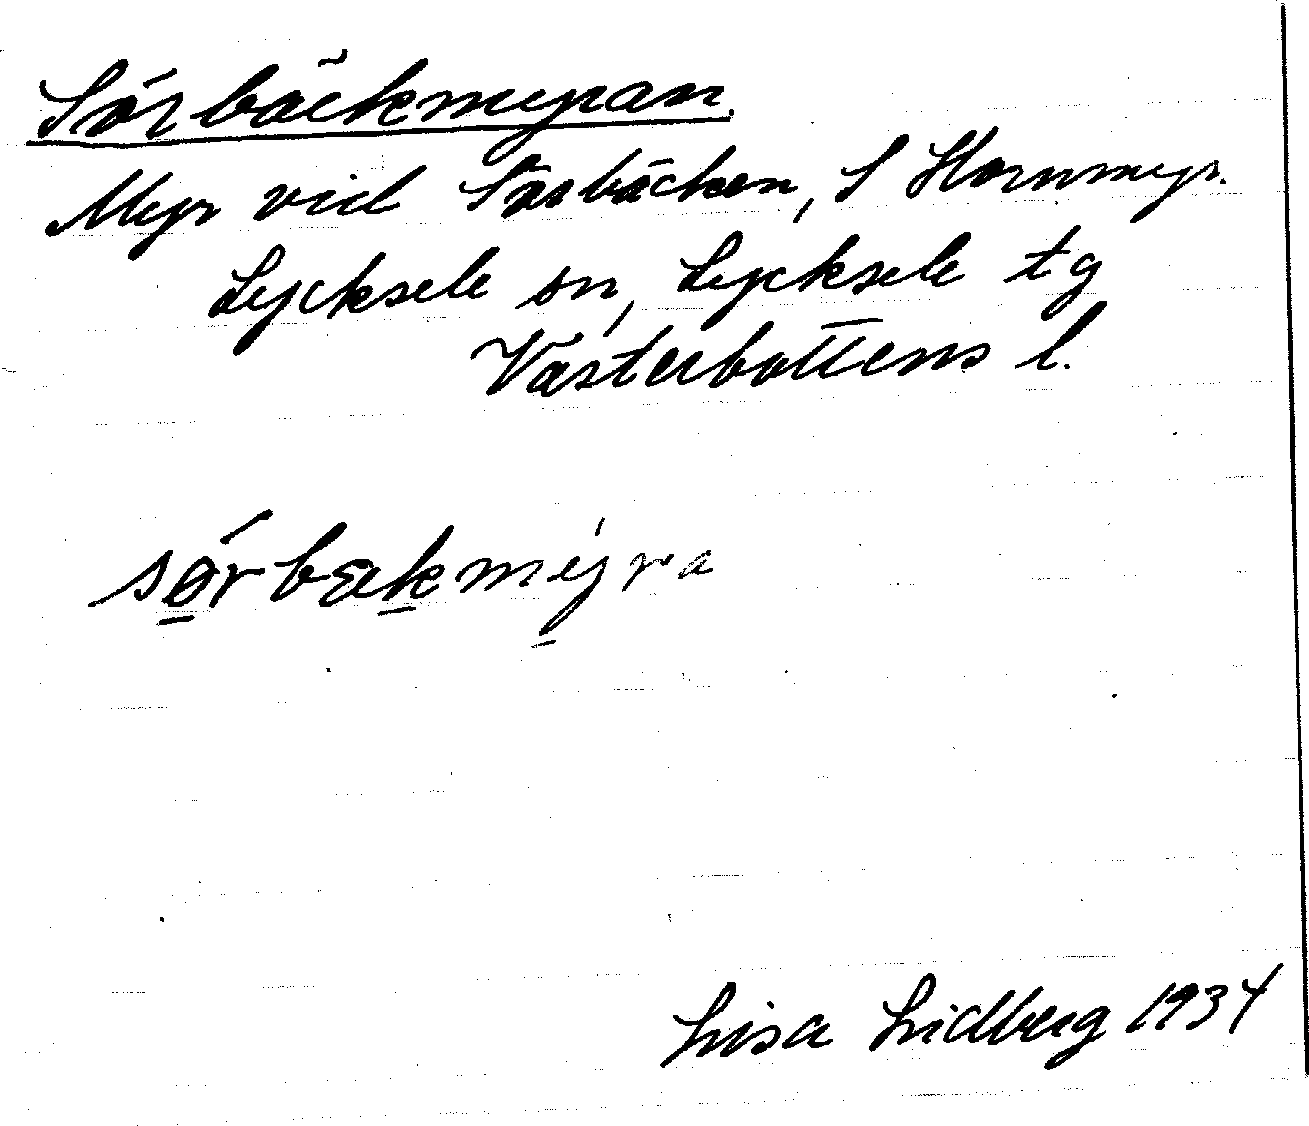 Sörbäckmyran.
Myr vid Sörbäcken, S Hornmyr.
Lycksele sn, Lycksele tg
Västerbottens l.
sørbækmyra
Lisa Lidberg 1934